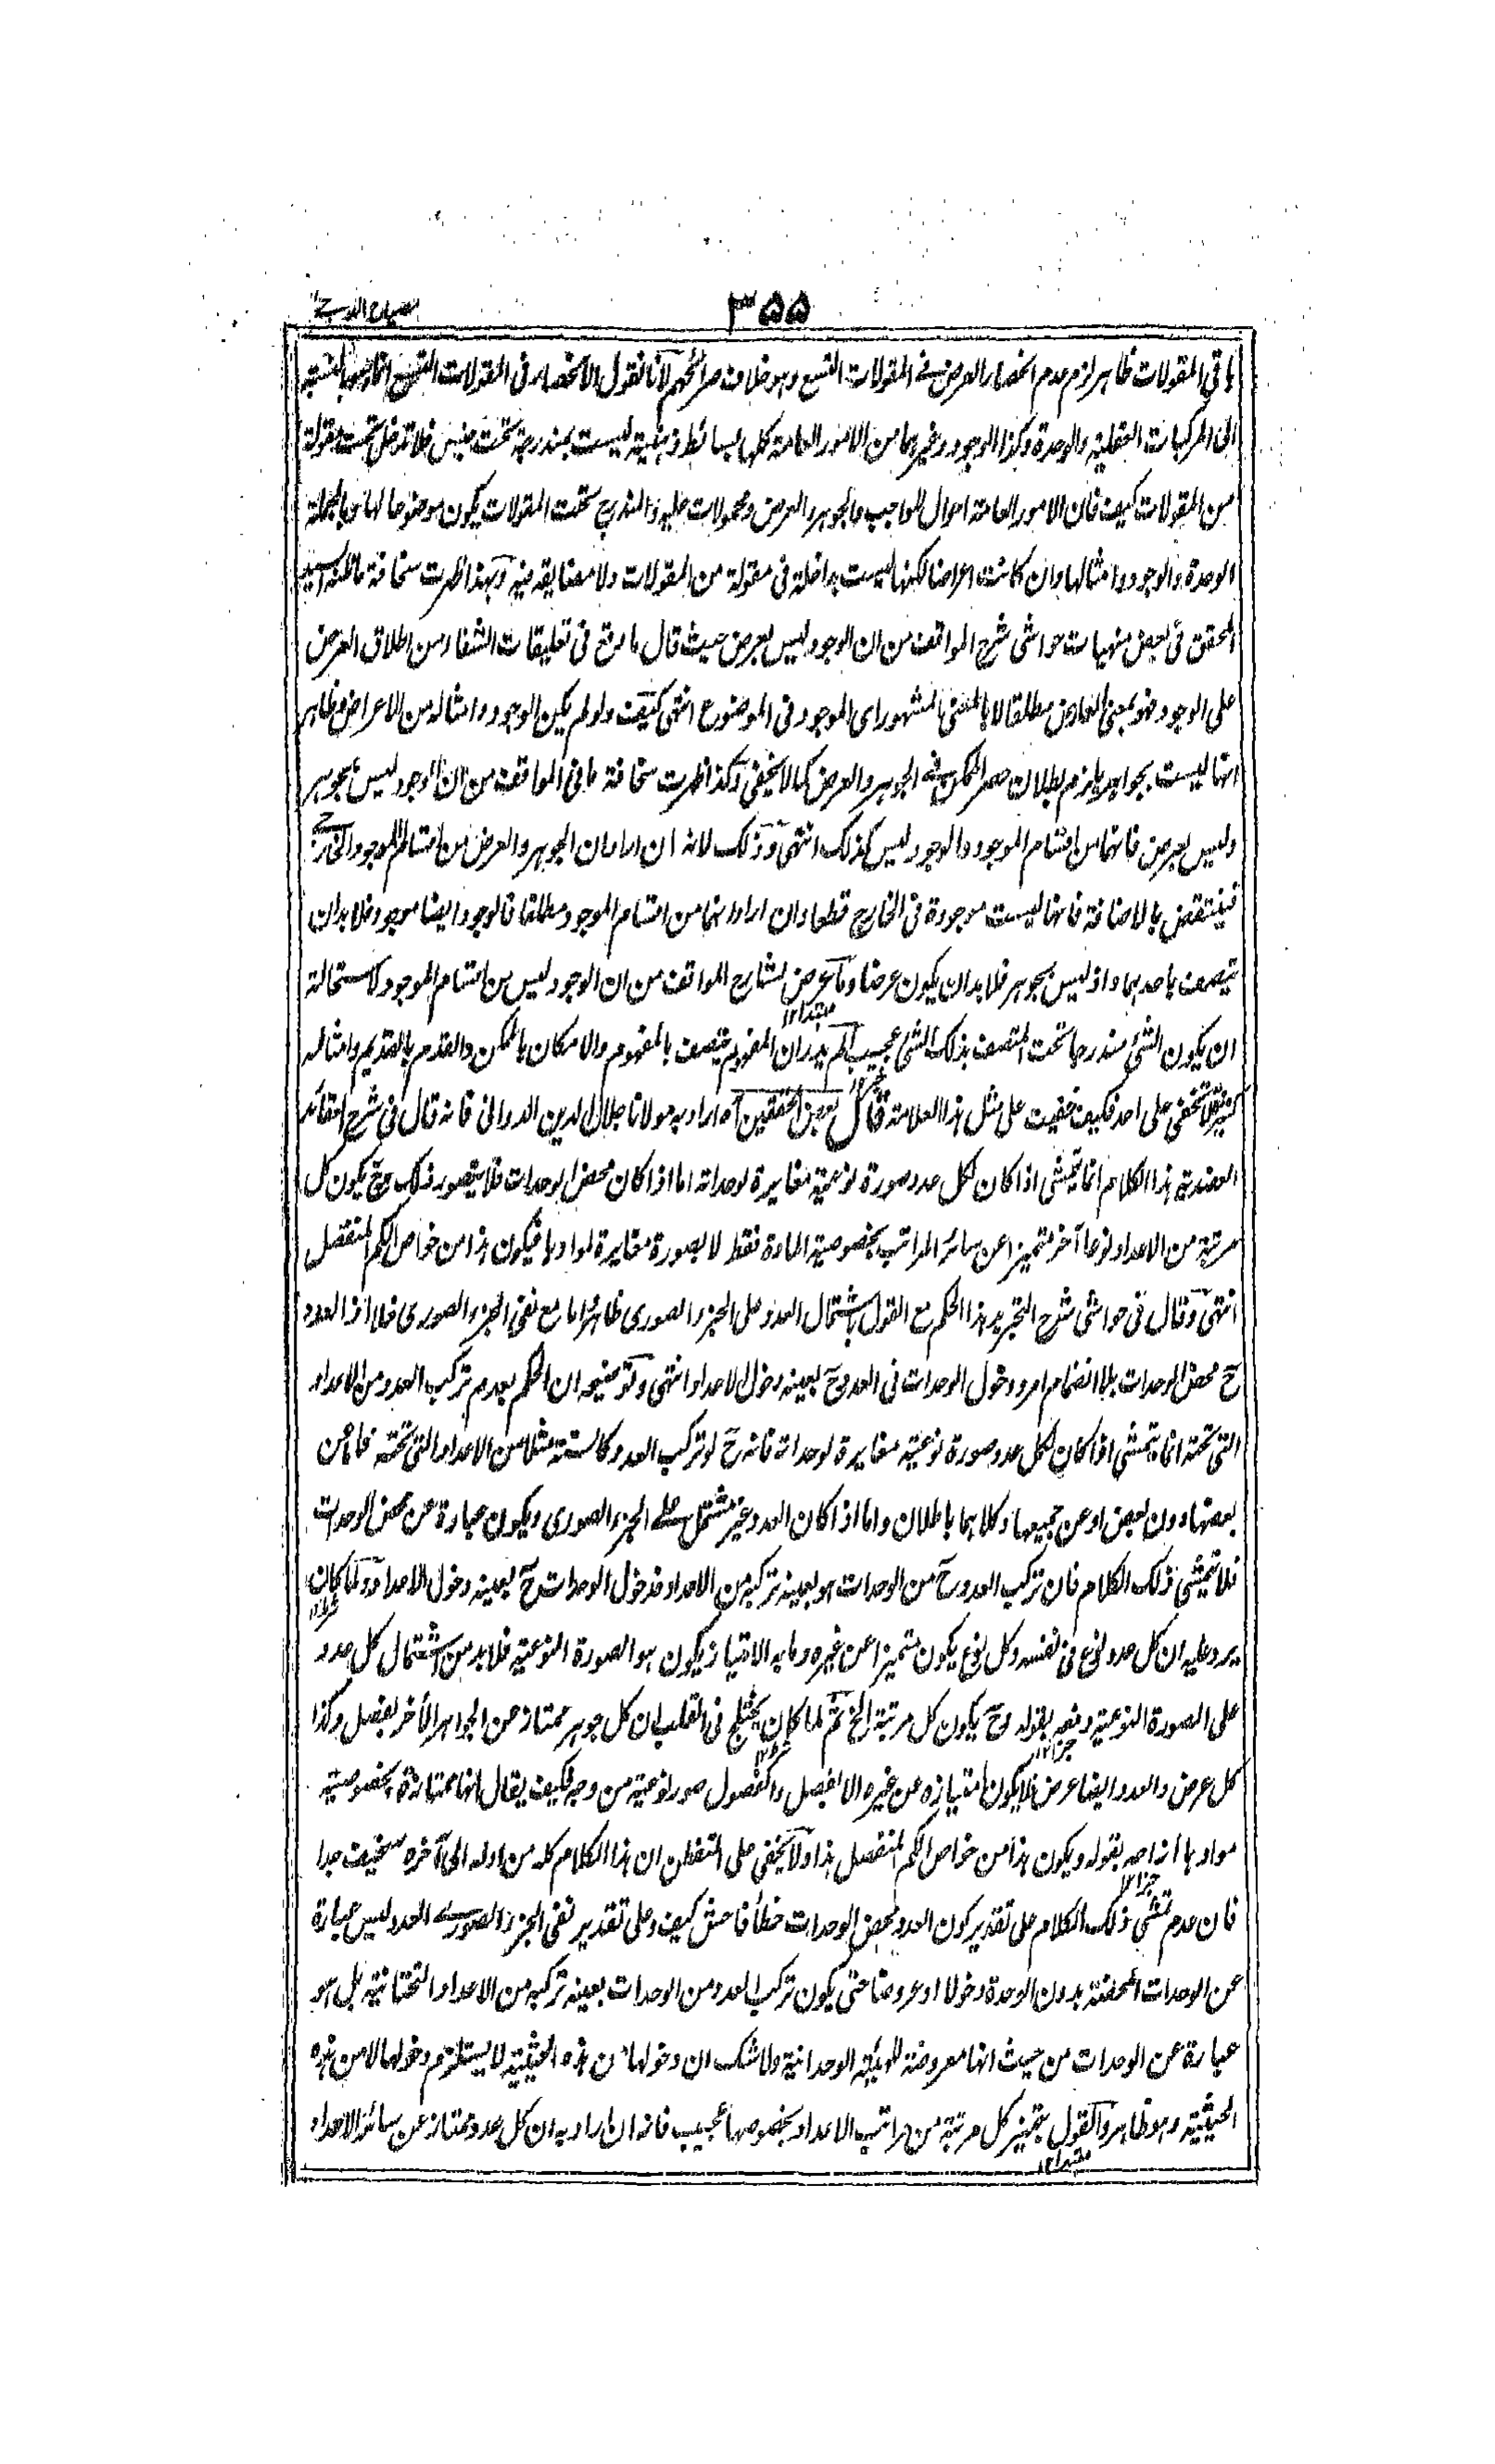 ۳۵۵
مصباح الدجى
باقي المقولات ظاهر لزم عدم انحصار العرض في المقولات التسع وهو خلاف صرائحهم لانا نقول الانحصار في المقولات التسع انما هو بالنسبة
الى المركبات العقلية والوحدة وكذا الوجود وغيرهما من الامور العامة كلها بسائط ذهنية ليست بمندرجة تحت جنس فلا تدخل تحت مقولة
من المقولات كيف فان الامور العامة احوال للواجب والجوهر والعرض ومحمولات عليه والمندرج تحت المقولات يكون موضوعا لها وبالجملة
الوحدة والوجود وامثالها وان كانت اعراضا لكنها ليست بداخلة في مقولة من المقولات ولا مضايقة فيه وبهذا ظهرت سخافة ما ظنه السيد
المحقق في بعض منهيات حواشي شرح المواقف من ان الوجود ليس بعرض حيث قال ما وقع في تعليقات الشفاء من اطلاق العرض
على الوجود فهو بمعنى العارض مطلقا لا بالمعنى المشهور اى الموجود في الموضوع انتهى كيف ولو لم يكن الوجود وامثاله من الاعراض وظاهر
انها ليست بجواهر يلزم بطلان حصر الممكن في الجوهر والعرض كما لا يخفى وكذا ظهرت سخافة ما في المواقف من ان الوجود ليس بجوهر
وليس بعرض فانهما من اقسام الموجود والوجود ليس كذلك انتهى وذلك لانه ان اراد ان الجوهر والعرض من اقسام الموجود الخارجي
فينتقض بالاضافة فانها ليست موجودة في الخارج قطعا وان اراد انهما من اقسام الموجود مطلقا فالوجود ايضا موجود فلا بد ان
يتصف باحدهما واذ ليس بجوهر فلا بد ان يكون عرضا وما عرض لشارح المواقف من ان الوجود ليس من اقسام الموجود لاستحالة
مبتدا ۱۲
ان يكون الشئ مندرجا تحت المتصف بذلك الشئ عجيب الم يدر ان المفهوم يتصف بالمفهوم والامكان بالممكن والقدم بالقديم وامثاله
خبر ۱۲
كثيرة لا تخفى على احد فكيف خفيت على مثل هذا العلامة قال بعض المحققين آه اراد به مولانا جلال الدين الدواني فانه قال في شرح العقائد
العضدية هذا الكلام انما يتمشى اذا كان لكل عدد صورة نوعية مغايرة لوحداته اما اذا كان محض الوحدات فلا يتصور ذلك وح يكون كل
مرتبة من الاعداد نوعا آخر متميزا عن سائر المراتب بخصوصية المادة فقط لا بصورة مغايرة لموادها فيكون هذا من خواص الكم المنفصل
انتهى وقال في حواشي شرح التجريد هذا الحكم مع القول باشتمال العدد على الجزء الصوري ظاهر اما مع نفى الجزء الصوري فلا اذ العدد
ح محض الوحدات بلا انضمام امر ودخول الوحدات في العدد ح بعينه دخول الاعداد انتهى وتوضيحه ان الحكم بعدم تركب العدد من الاعداد
التي تحته انما يتمشى اذا كان لكل عدد صورة نوعية مغايرة لوحداته فانه ح لو تركب العدد كالستة مثلا من الاعداد التي تحته فاما من
بعضها دون بعض او عن جميعها وكلاهما باطلان واما اذا كان العدد غير مشتمل على الجزء الصوري ويكون عبارة عن محض الوحدات
فلا يتمشى ذلك الكلام فان تركب العدد ح من الوحدات هو بعينه تركبه من الاعداد فدخول الوحدات ح بعينه دخول الاعداد ولما كان
شرط ۱۲
يرد عليه ان كل عدد نوع في نفسه وكل نوع يكون متميزا عن غيره وما به الامتياز يكون هو الصورة النوعية فلا بد من اشتمال كل عدد
على الصورة النوعية دفعه بقوله وح يكون كل مرتبة الخ ثم لما كان يختلج في القلب ان كل جوهر ممتاز عن الجواهر الأخر بفصل وكذا
شرط ۱۲
جزا ۱۲
كل عرض والعدد ايضا عرض فلا يكون امتيازه عن غيره الا بفصل والفصول صور نوعية من وجه فكيف يقال انها ممتازة بخصوصية
موادها ازاحه بقوله ويكون هذا من خواص الكم المنفصل هذا ولا يخفى على المتفطن ان هذا الكلام كله من اوله الى آخره سخيف جدا
جزا ۱۲
فان عدم تمشى ذلك الكلام على تقدير كون العدد محض الوحدات خطأ فاحش كيف وعلى تقدير نفى الجزء الصوري العدد ليس عبارة
عن الوحدات المحضة بدون الوحدة دخولا او عروضا حتى يكون تركب العدد من الوحدات بعينه تركبه من الاعداد التحتانية بل هو
عبارة عن الوحدات من حيث انها معروضة للهيئة الوحدانية ولا شك ان دخولها من هذه الحيثية لا يستلزم دخولها لا من هذه
الحيثية وهو ظاهر والقول بتميز كل مرتبة من مراتب الاعداد بخصوصها عجيب فانه ان اراد به ان كل عدد ممتاز عن سائر الاعداد
مبتدا ۱۲